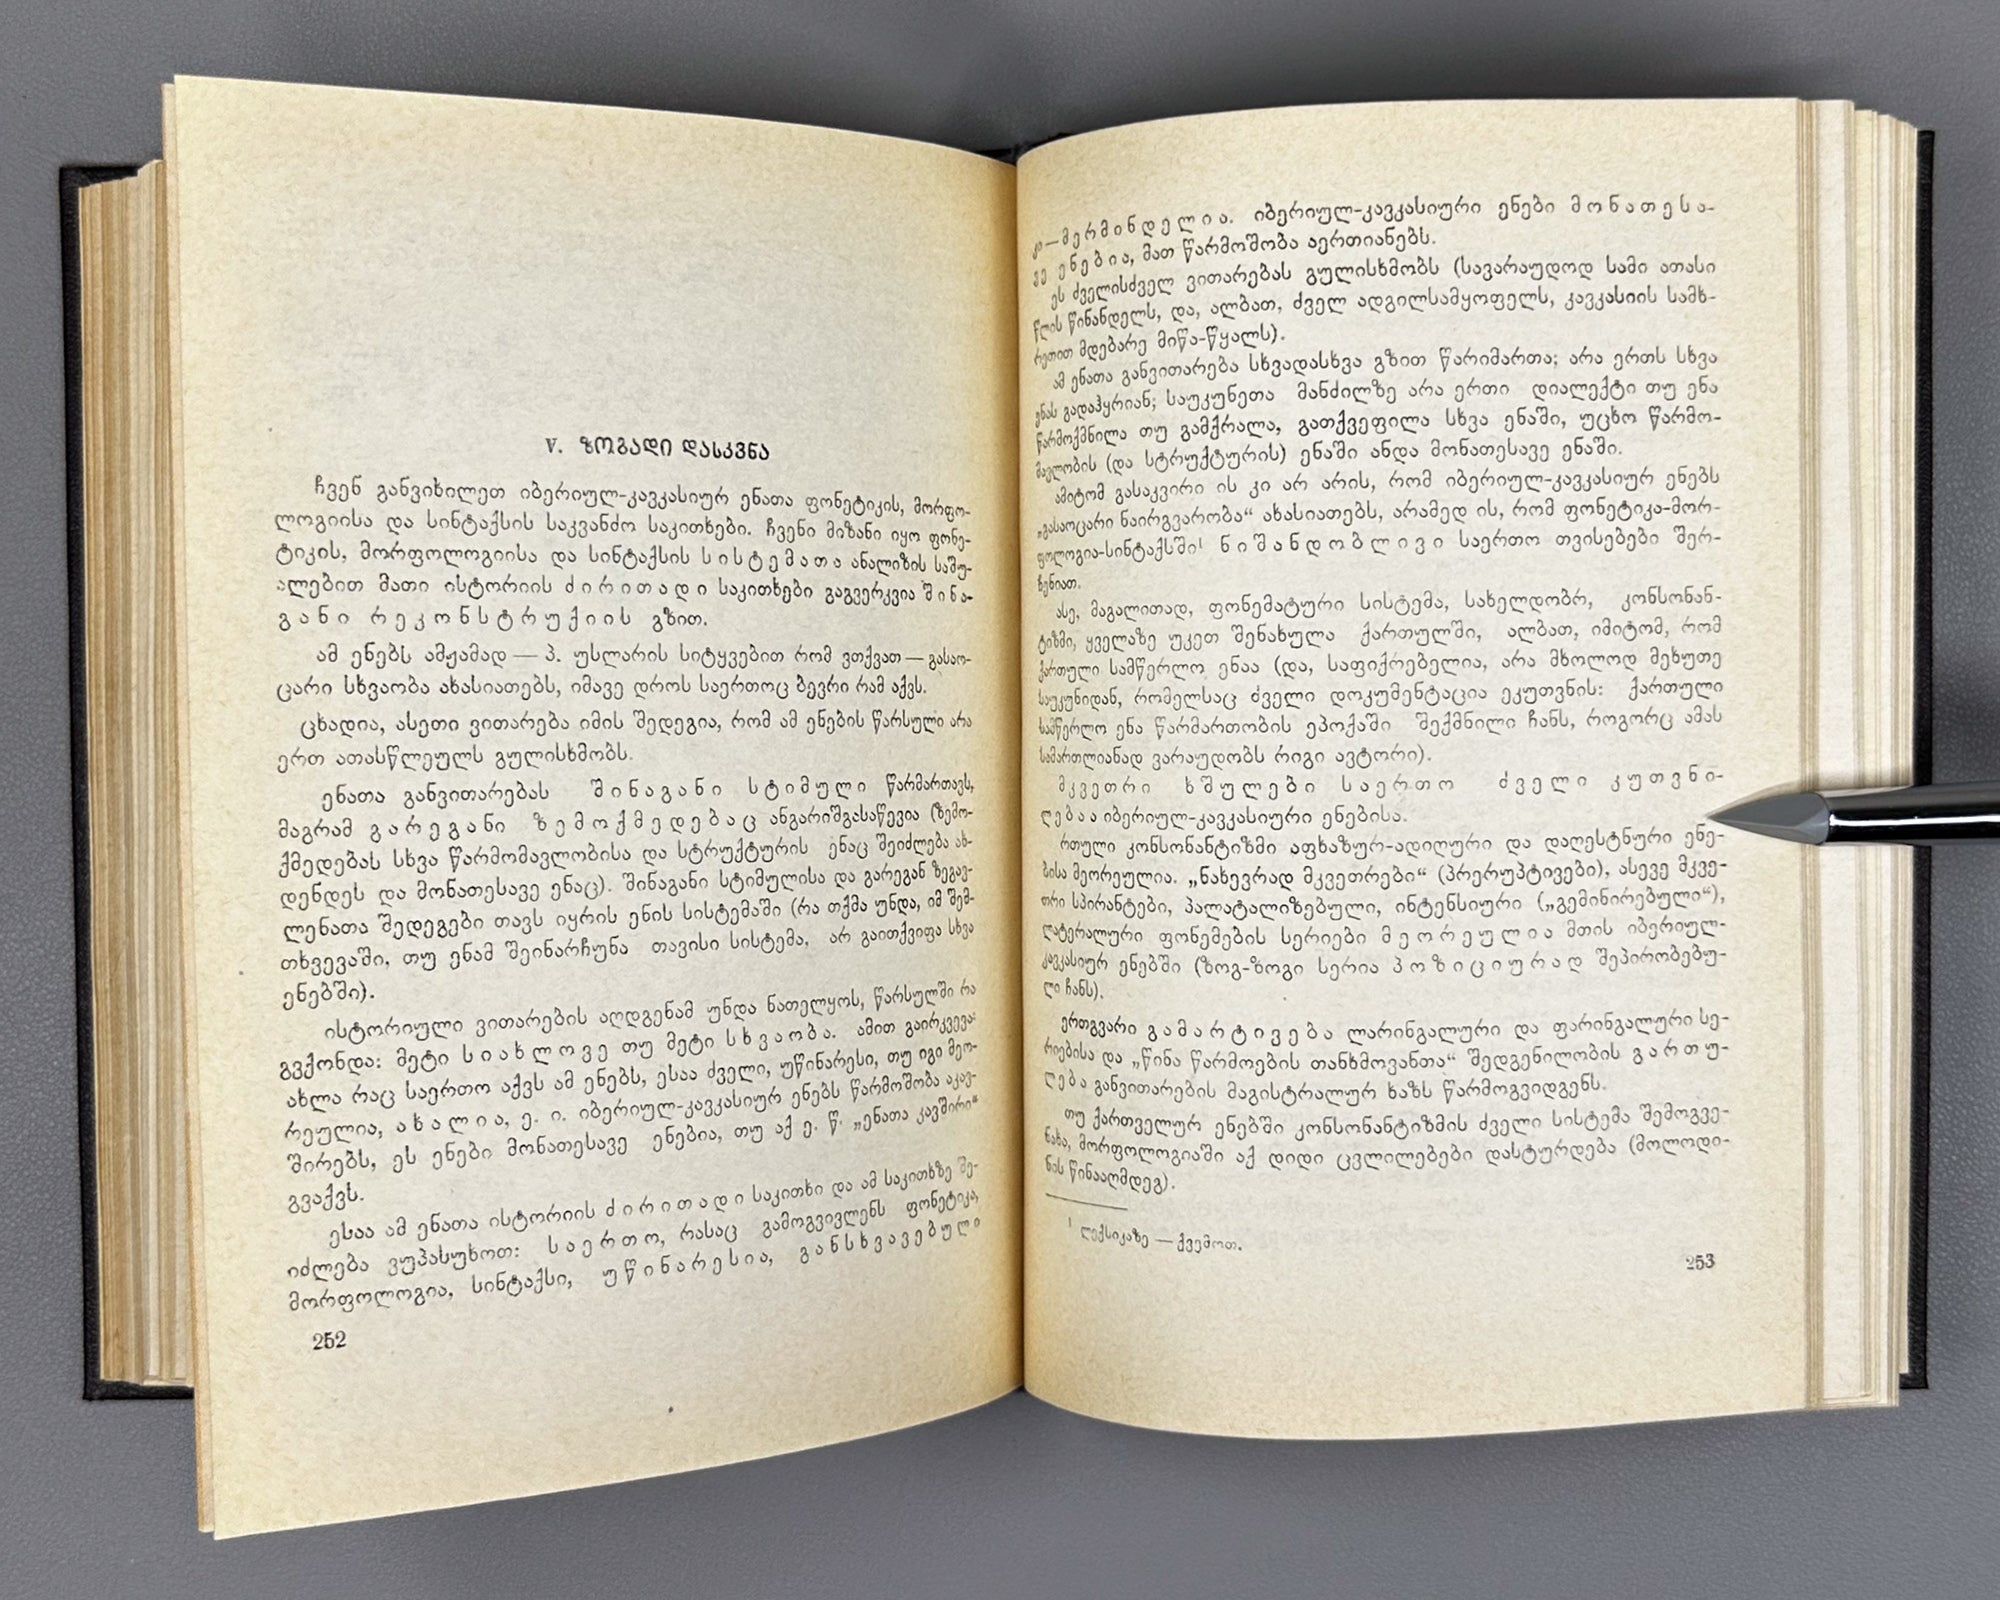 V. ᲖᲝᲒᲐᲓᲘ ᲓᲐᲡᲙᲕᲜᲐ
ჩვენ განვიხილეთ იბერიულ-კავკასიურ ენათა ფონეტიკის, მორფო-
ლოგიისა და სინტაქსის საკვანძო საკითხები. ჩვენი მიზანი იყო ფონე-
ტიკის, მორფოლოგიისა და სინტაქსის სისტემათა ანალიზის საშუ-
ალებით მათი ისტორიის ძირითადი საკითხები გაგვერკვია შინა-
განი რეკონსტრუქიის გზით.
ამ ენებს ამჟამად — პ. უსლარის სიტყვებით რომ ვთქვათ — გასაო-
ცარი სხვაობა ახასიათებს, იმავე დროს საერთოც ბევრი რამ აქვს.
ცხადია, ასეთი ვითარება იმის შედეგია, რომ ამ ენების წარსული არა
ერთ ათასწლეულს გულისხმობს.
ენათა განვითარებას შინაგანი სტიმული წარმართავს,
მაგრამ გარეგანი ზემოქმედებაც ანგარიშგასაწევია (ზემო-
ქმედებას სხვა წარმომავლობისა და სტრუქტურის ენაც შეიძლება ახ-
დენდეს და მონათესავე ენაც). შინაგანი სტიმულისა და გარეგან ზეგავ-
ლენათა შედეგები თავს იყრის ენის სისტემაში (რა თქმა უნდა, იმ შემ-
თხვევაში, თუ ენამ შეინარჩუნა თავისი სისტემა, არ გაითქვიფა სხვა
ენებში).
ისტორიული ვითარების აღდგენამ უნდა ნათელყოს, წარსულში რა
გვქონდა: მეტი სიახლოვე თუ მეტი სხვაობა. ამით გაირკვევა:
ახლა რაც საერთო აქვს ამ ენებს, ესაა ძველი, უწინარესი, თუ იგი მეო-
რეულია, ახალია, ე. ი. იბერიულ-კავკასიურ ენებს წარმოშობა აკავ-
შირებს, ეს ენები მონათესავე ენებია, თუ აქ ე. წ. „ენათა კავშირი“
გვაქვს.
ესაა ამ ენათა ისტორიის ძირითადი საკითხი და ამ საკითხზე შე-
იძლება ვუპასუხოთ: საერთო, რასაც გამოგვივლენს ფონეტიკა,
მორფოლოგია, სინტაქსი, უწინარესია, განსხვავებული
252
კი — მერმინდელია. იბერიულ-კავკასიური ენები მონათესა-
ვე ენებია, მათ წარმოშობა აერთიანებს.
ეს ძველისძველ ვითარებას გულისხმობს (სავარაუდოდ სამი ათასი
წლის წინანდელს, და, ალბათ, ძველ ადგილსამყოფელს, კავკასიის სამხ-
რეთით მდებარე მიწა-წყალს).
ამ ენათა განვითარება სხვადასხვა გზით წარიმართა; არა ერთს სხვა
ენას გადაჰყრიან; საუკუნეთა მანძილზე არა ერთი დიალექტი თუ ენა
წარმოქმნილა თუ გამქრალა, გათქვეფილა სხვა ენაში, უცხო წარმო-
მავლობის (და სტრუქტურის) ენაში ანდა მონათესავე ენაში.
ამიტომ გასაკვირი ის კი არ არის, რომ იბერიულ-კავკასიურ ენებს
„გასაოცარი ნაირგვარობა“ ახასიათებს, არამედ ის, რომ ფონეტიკა-მორ-
ფოლოგია-სინტაქსში¹ ნიშანდობლივი საერთო თვისებები შერ-
ჩენიათ.
ასე, მაგალითად, ფონემატური სისტემა, სახელდობრ, კონსონან-
ტიზმი, ყველაზე უკეთ შენახულა ქართულში, ალბათ, იმიტომ, რომ
ქართული სამწერლო ენაა (და, საფიქრებელია, არა მხოლოდ მეხუთე
საუკუნიდან, რომელსაც ძველი დოკუმენტაცია ეკუთვნის: ქართული
სამწერლო ენა წარმართობის ეპოქაში შექმნილი ჩანს, როგორც ამას
სამართლიანად ვარაუდობს რიგი ავტორი).
მკვეთრი ხშულები საერთო ძველი კუთვნი-
ლებაა იბერიულ-კავკასიური ენებისა.
რთული კონსონანტიზმი აფხაზურ-ადიღური და დაღესტნური ენე-
ბისა მეორეულია. „ნახევრად მკვეთრები“ (პრერუპტივები), ასევე მკვე-
თრი სპირანტები, პალატალიზებული, ინტენსიური („გემინირებული“),
ლატერალური ფონემების სერიები მეორეულია მთის იბერიულ-
კავკასიურ ენებში (ზოგ-ზოგი სერია პოზიციურად შეპირობებუ-
ლი ჩანს).
ერთგვარი გამარტივება ლარინგალური და ფარინგალური სე-
რიებისა და „წინა წარმოების თანხმოვანთა“ შედგენილობის გართუ-
ლება განვითარების მაგისტრალურ ხაზს წარმოგვიდგენს.
თუ ქართველურ ენებში კონსონანტიზმის ძველი სისტემა შემოგვე-
ნახა, მორფოლოგიაში აქ დიდი ცვლილებები დასტურდება (მოლოდი-
ნის წინააღმდეგ).
¹ ლექსიკაზე — ქვემოთ.
253